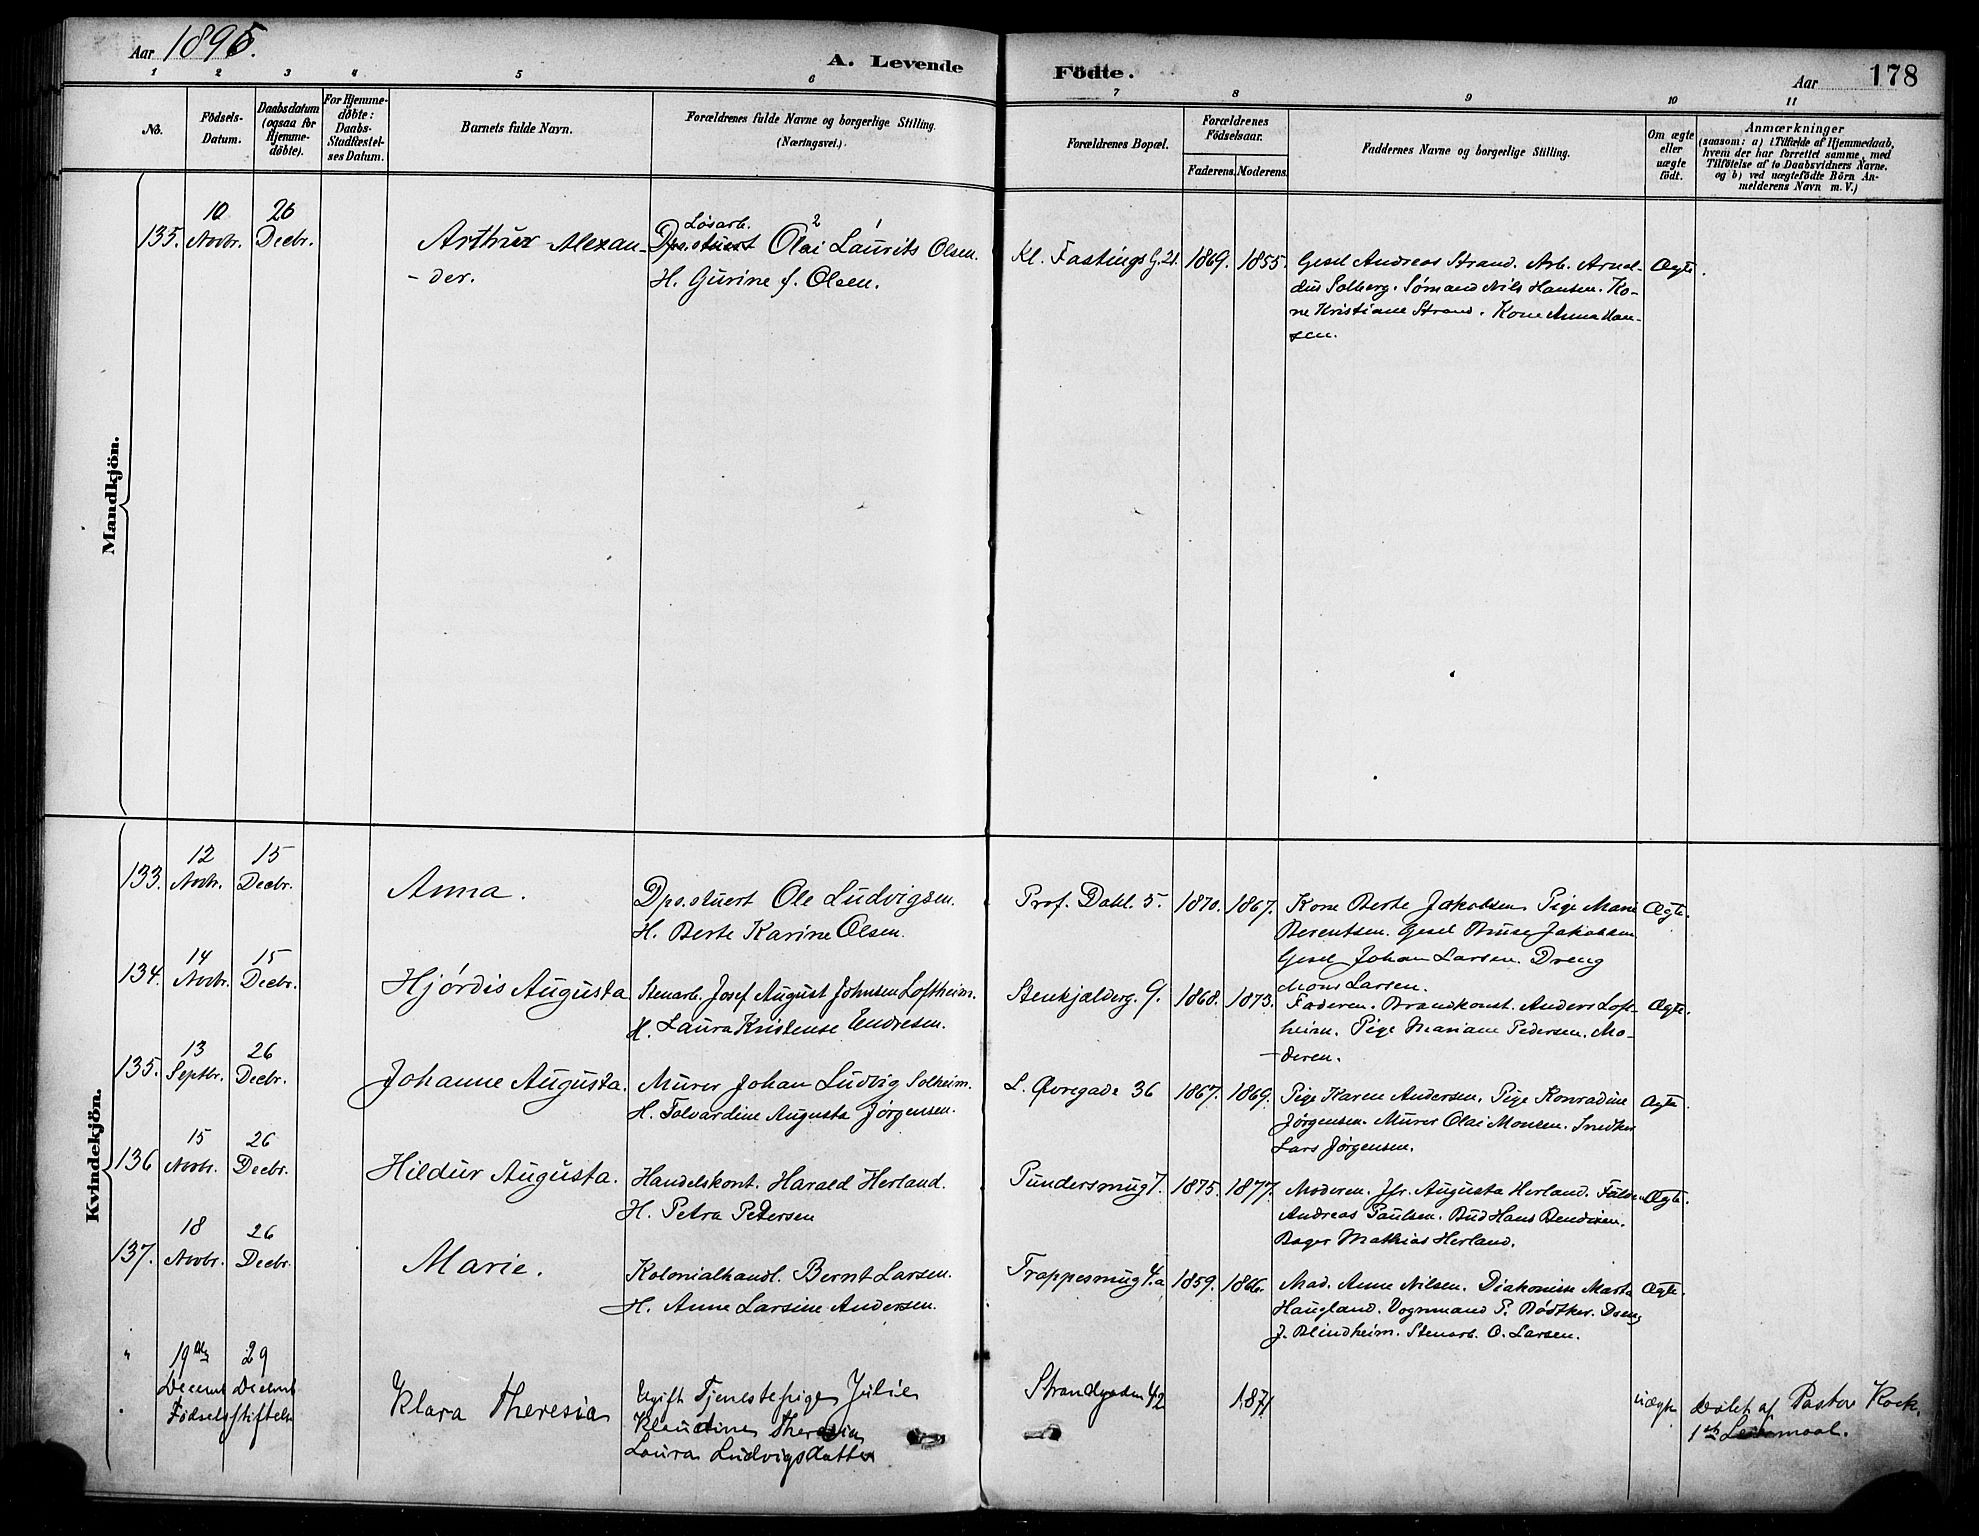 Aar 1895.
A. Levende
Födte.
Aar
178
1 2 3 4 5 6 7 8 9 10 11
No.
Födsels-
Datum.
Daabsdatum
(ogsaa for
Hjemme-
döbte).
For Hjemme-
döbte:
Daabs-
Stadfæstel-
ses Datum.
Barnets fulde Navn.
Forældrenes fulde Navne og borgerlige Stilling.
(Næringsvei.)
Forældrenes Bopæl.
Forældrenes
Födselsaar.
Faderens. Moderens.
Faddernes Navne og borgerlige Stilling.
Om ægte
eller
uægte
födt.
Anmærkninger
(saasom: a) i Tilfælde af Hjemmedaab,
hvem der har forrettet samme, med
Tilföielse af to Daabsvidners Navne,
og b) ved uægtefödte Börn An-
melderens Navn m. V.)
Mandkjön.
135. 10 Novbr. 26 Decbr.
Arthur Alexan-
-der.
Løsarb.
Dps.stuert Olai 2 Laurits 1 Olsen.
H. Gurine f. Olsen.
Kl. Fastings G. 21. 1869. 1855.
Gesel Andreas Strand. Arb. Arnol-
dus Solberg. Sømand Nils Hansen. Ko-
ne Kristiane Strand. Kone Anna Han-
sen.
Ægte.
Kvindekjön.
133. 12 Novbr. 15 Decbr.
Anna.
Dps.stuert Ole Ludvigsen.
H. Berte Karine Olsen.
Prof. Dahl. 5. 1870. 1867.
Kone Berte Jakobsen Pige Marie
Berentsen. Gesel Brusg Jakobsen
Gesel Johan Larsen. Dreng
Mons Larsen.
Ægte.
134. 14 Novbr. 15 Decbr.
Hjördis Augusta
Stenarb. Josef August Johnsen Loftheim.
H. Laura Kristense Endresen.
Stenkjælderg. 9. 1868. 1873.
Faderen. Brandkonst. Anders Loft-
heim. Pige Mariane Pedersen. Mo-
-deren.
Ægte.
135. 13 Septbr. 26 Decbr.
Johanne Augusta.
Murer Johan Ludvig Solheim.
H. Tolvardine Augusta Jørgensen.
L. Øvregade 36 1867. 1869.
Pige Karen Andersen. Pige Konradine
Jørgensen. Murer Olai Monsen. Snedker
Lars Jørgensen.
Ægte.
136 15 Novbr. 26 Decbr.
Hildur Augusta.
Handelskont. Harald Herland.
H. Petra Petersen
Pundersmug 7. 1875. 1877.
Moderen. Jfr. Augusta Herland.
Andreas Paulsen. Bud Hans Bendixen.
Bager Mathias Herland.
Ægte.
137. 18 Novbr. 26 Decbr.
Marie.
Kolonialhandl. Bernt Larsen.
H. Anne Larsine Andersen.
Trappesmug 4.a 1859. 1866.
Mad. Anne Nilsen. Diakonisse Marta
Haugland. Vognmand P. Bødtker. Dreng
J. Blindheim. Stenarb. O. Larsen.
Ægte.
" 19de 29
Decemb Decemb
Fødselsstiftelse
Klara Theresia
Ugift Tjenestepige Julie
Klaudine Theresia
Laura Ludvigsdatter
Strandgaden 42 1871
uægte
Døbt af Pastor Kock.
1ste Leiermaal.